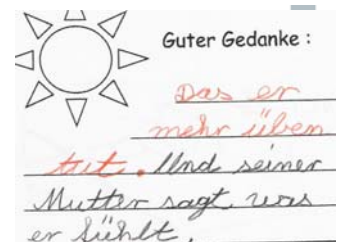 Guter Gedanke :
Das er
mehr üben
tut. Und seiner
Mutter sagt was
er fühlt.